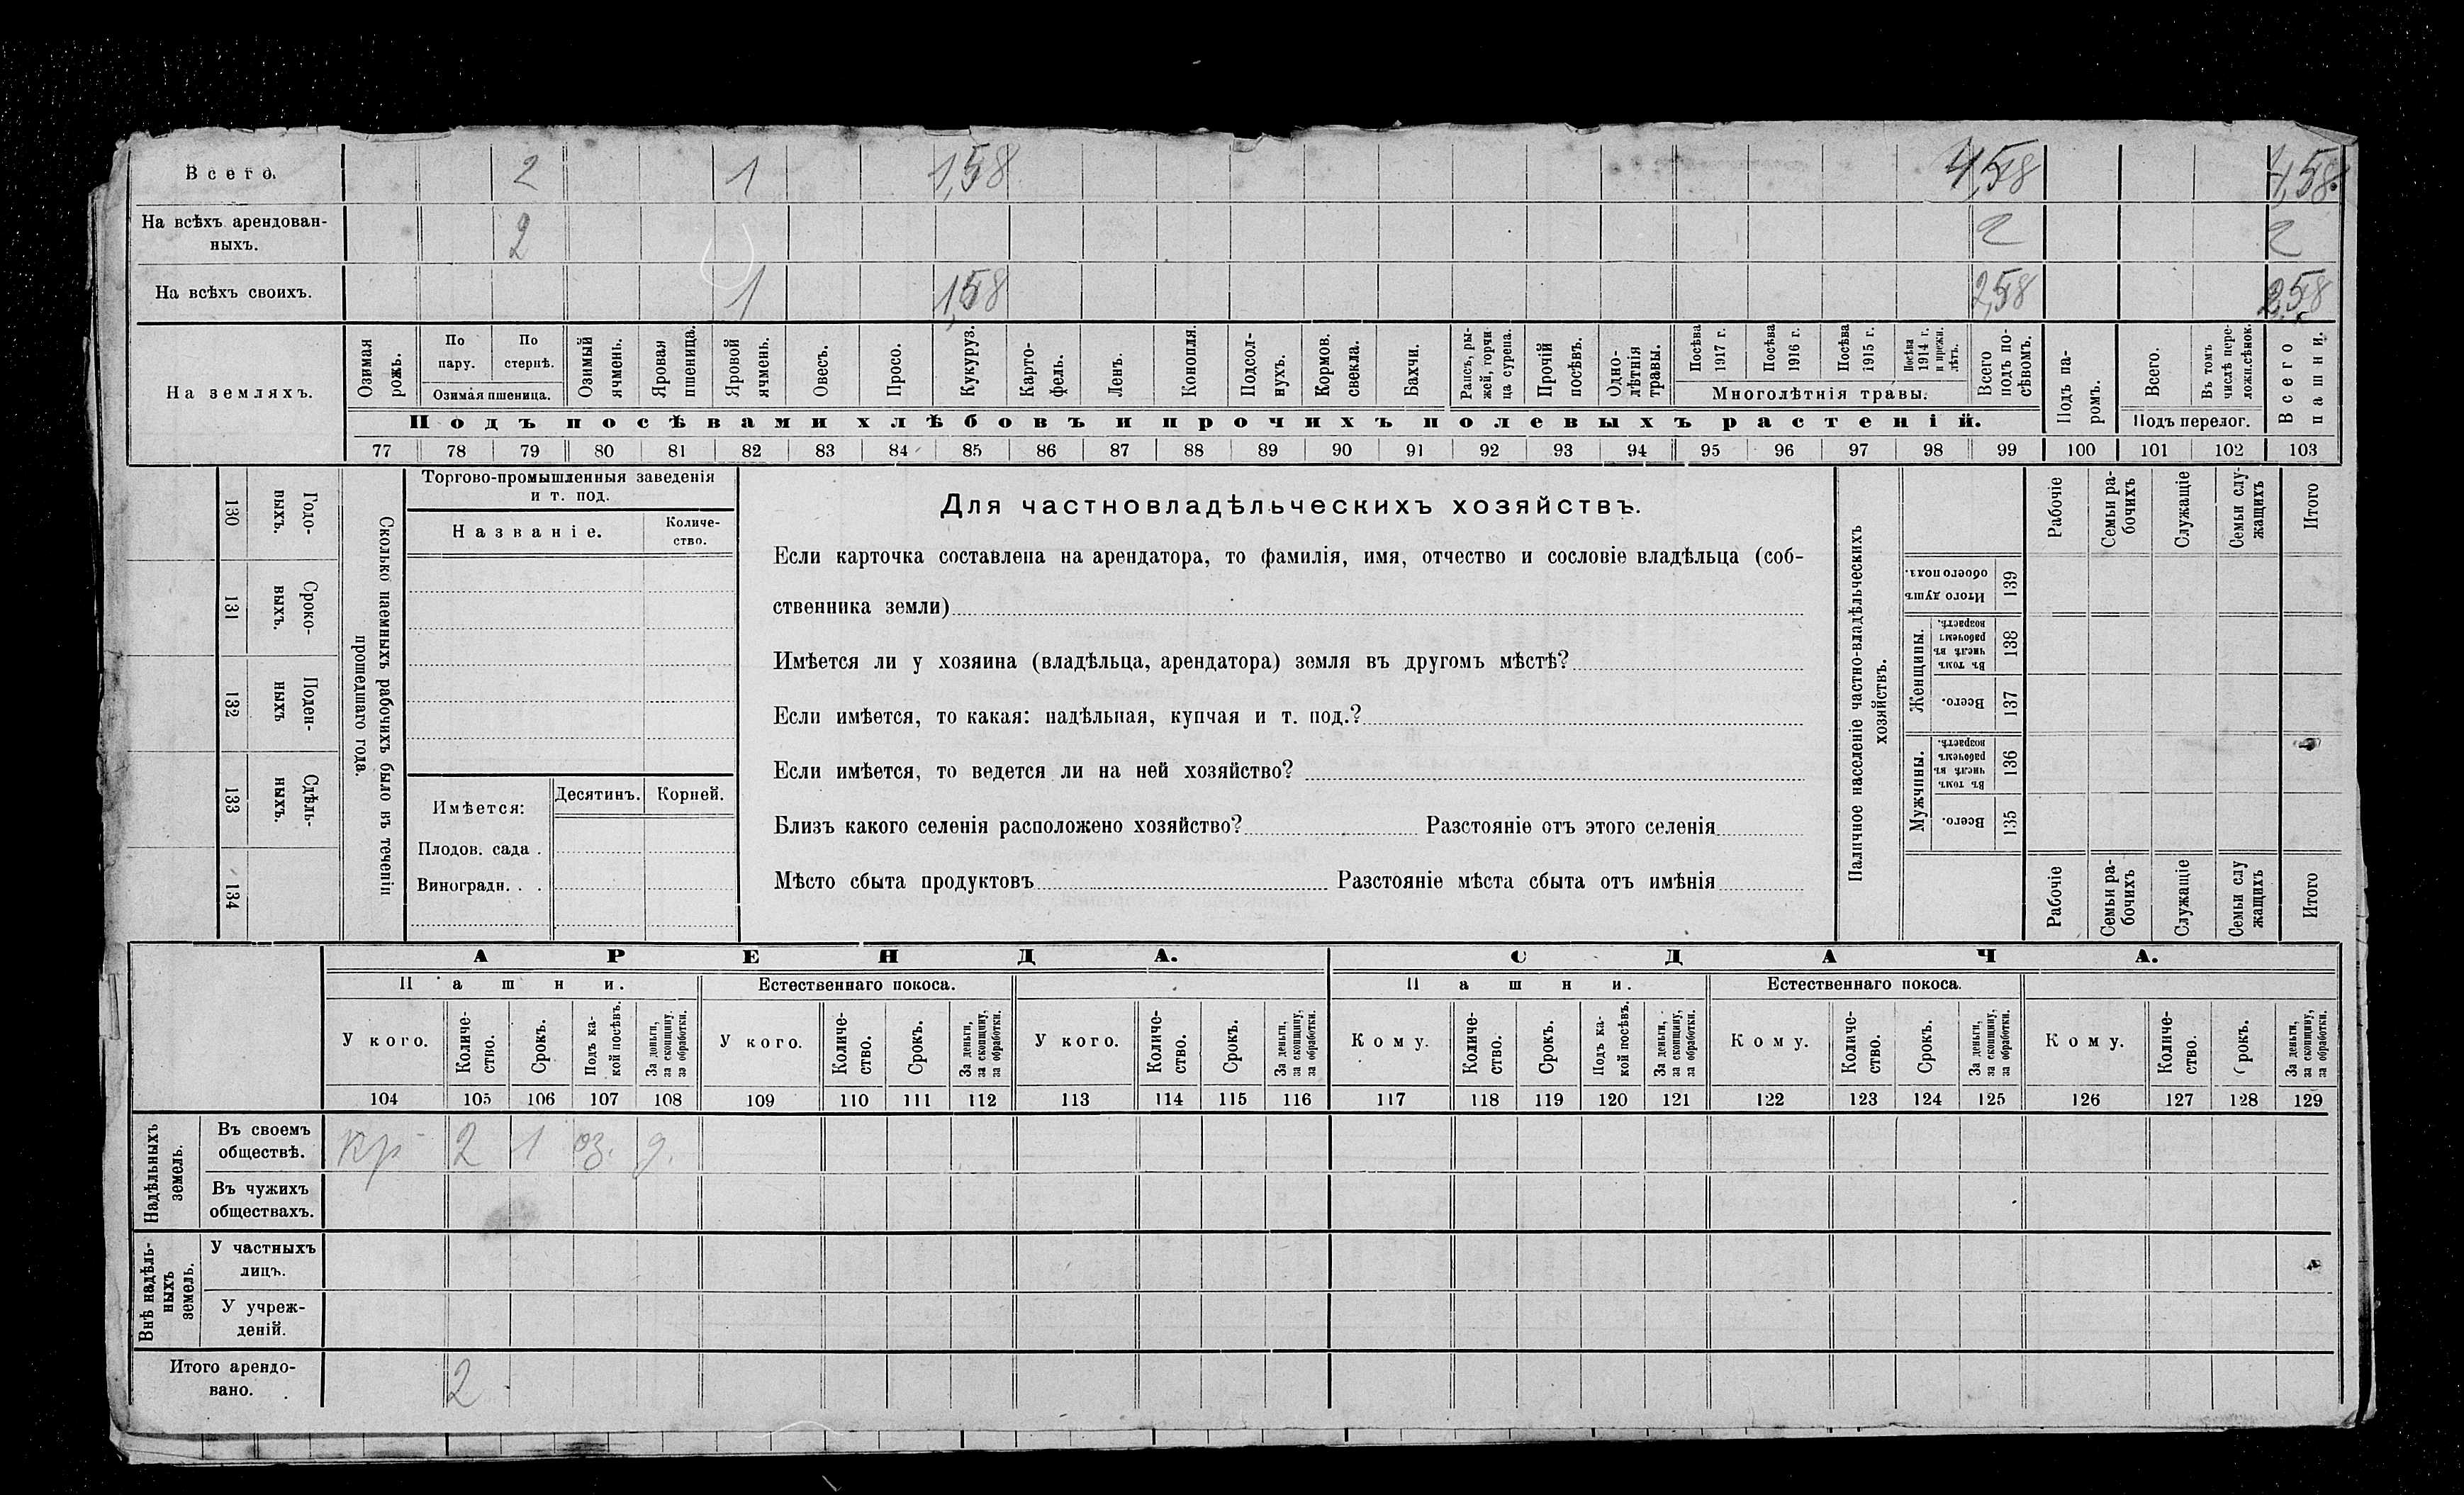 Всего. 2 1 1,58 4,58 4,58
На всѣхъ арендован-
ныхъ. 2 2 2
На всѣхъ своихъ. 1 1,58 2,58 2,58
На земляхъ.
Озимая рожь.
По пару.
По стернѣ.
Озимая пшеница.
Озимый ячмень.
Яровая пшеница.
Яровой ячмень.
Овесъ.
Просо.
Кукуруз.
Карто-
фель.
Ленъ.
Конопля.
Подсол-
нухъ.
Кормов. свекла.
Бахчи.
Рапсъ, ры-
жей, горчи
ца сурепа.
Прочій посѣвъ.
Одно-
лѣтнія
травы.
Посѣва 1917 г.
Посѣва 1916 г.
Посѣва 1915 г.
Посѣва
1914 г.
и прежн.
лѣтъ.
Многолѣтнія травы.
Всего
подъ по-
сѣвомъ.
Подъ па-
ромъ.
Всего.
Въ томъ
числѣ пере-
ложн.сѣнок.
Подъ перелог.
Всего пашни.
Подъ посѣвами хлѣбовъ и прочихъ полевыхъ растеній.
77 78 79 80 81 82 83 84 85 86 87 88 89 90 91 92 93 94 95 96 97 98 99 100 101 102 103
130 Годо-
выхъ.
131 Сроко-
выхъ.
132 Поден-
ныхъ
133 Сдѣль-
ныхъ.
134
Сколько наемныхъ рабочихъ было въ теченіи
прошедшаго года.
Торгово-промышленныя заведенія
и т. под.
Названіе. Количе-
ство.
Имѣется: Десятинъ. Корней.
Плодов. сада .
Виноградн. . .
Для частновладѣльческихъ хозяйствъ.
Если карточка составлена на арендатора, то фамилія, имя, отчество и сословіе владѣльца (соб-
ственника земли)
Имѣется ли у хозяина (владѣльца, арендатора) земля въ другомъ мѣстѣ?
Если имѣется, то какая: надѣльная, купчая и т. под.?
Если имѣется, то ведется ли на ней хозяйство?
Близъ какого селенія расположено хозяйство? Разстояніе отъ этого селенія
Мѣсто сбыта продуктовъ Разстояніе мѣста сбыта отъ имѣнія
Наличное населеніе частно-владѣльческихъ
хозяйствъ.
Рабочіе
Семьи ра-
бочихъ
Служащіе
Семьи слу-
жащихъ
Итого
Итого душъ
обоего пола. 139
Женщины.
Въ томъ
числѣ въ
рабочемъ
возрастѣ. 138
Всего. 137
Мужчины.
Въ томъ
числѣ въ
рабочемъ
возрастѣ. 136
Всего. 135
Рабочіе
Семьи ра-
бочихъ
Служащіе
Семьи слу
жащихъ
Итого
АРЕНДА. СДАЧА.
Пашни. Естественнаго покоса. Пашни. Естественнаго покоса.
У кого.
Количе-
ство.
Срокъ.
Подъ ка-
кой посѣвъ.
За деньги,
за скопщину,
за обработки.
У кого.
Количе-
ство.
Срокъ.
За деньги,
за скопщину,
за обработки.
У кого.
Количе-
ство.
Срокъ.
За деньги,
за скопщину,
за обработки.
Кому.
Количе-
ство.
Срокъ.
Подъ ка-
кой посѣвъ.
За деньги,
за скопщину,
за обработки.
Кому.
Количе-
ство.
Срокъ.
За деньги,
за скопщину,
за обработки.
Кому.
Количе-
ство.
Срокъ.
За деньги,
за скопщину,
за обработки.
104 105 106 107 108 109 110 111 112 113 114 115 116 117 118 119 120 121 122 123 124 125 126 127 128 129
Надѣльныхъ
земель.
Въ своемъ
обществѣ. кр 2 1 оз. д.
Въ чужихъ
обществахъ.
Внѣ надѣль-
ныхъ
земель.
У частныхъ
лицъ.
У учреж-
деній.
Итого арендо-
вано. 2